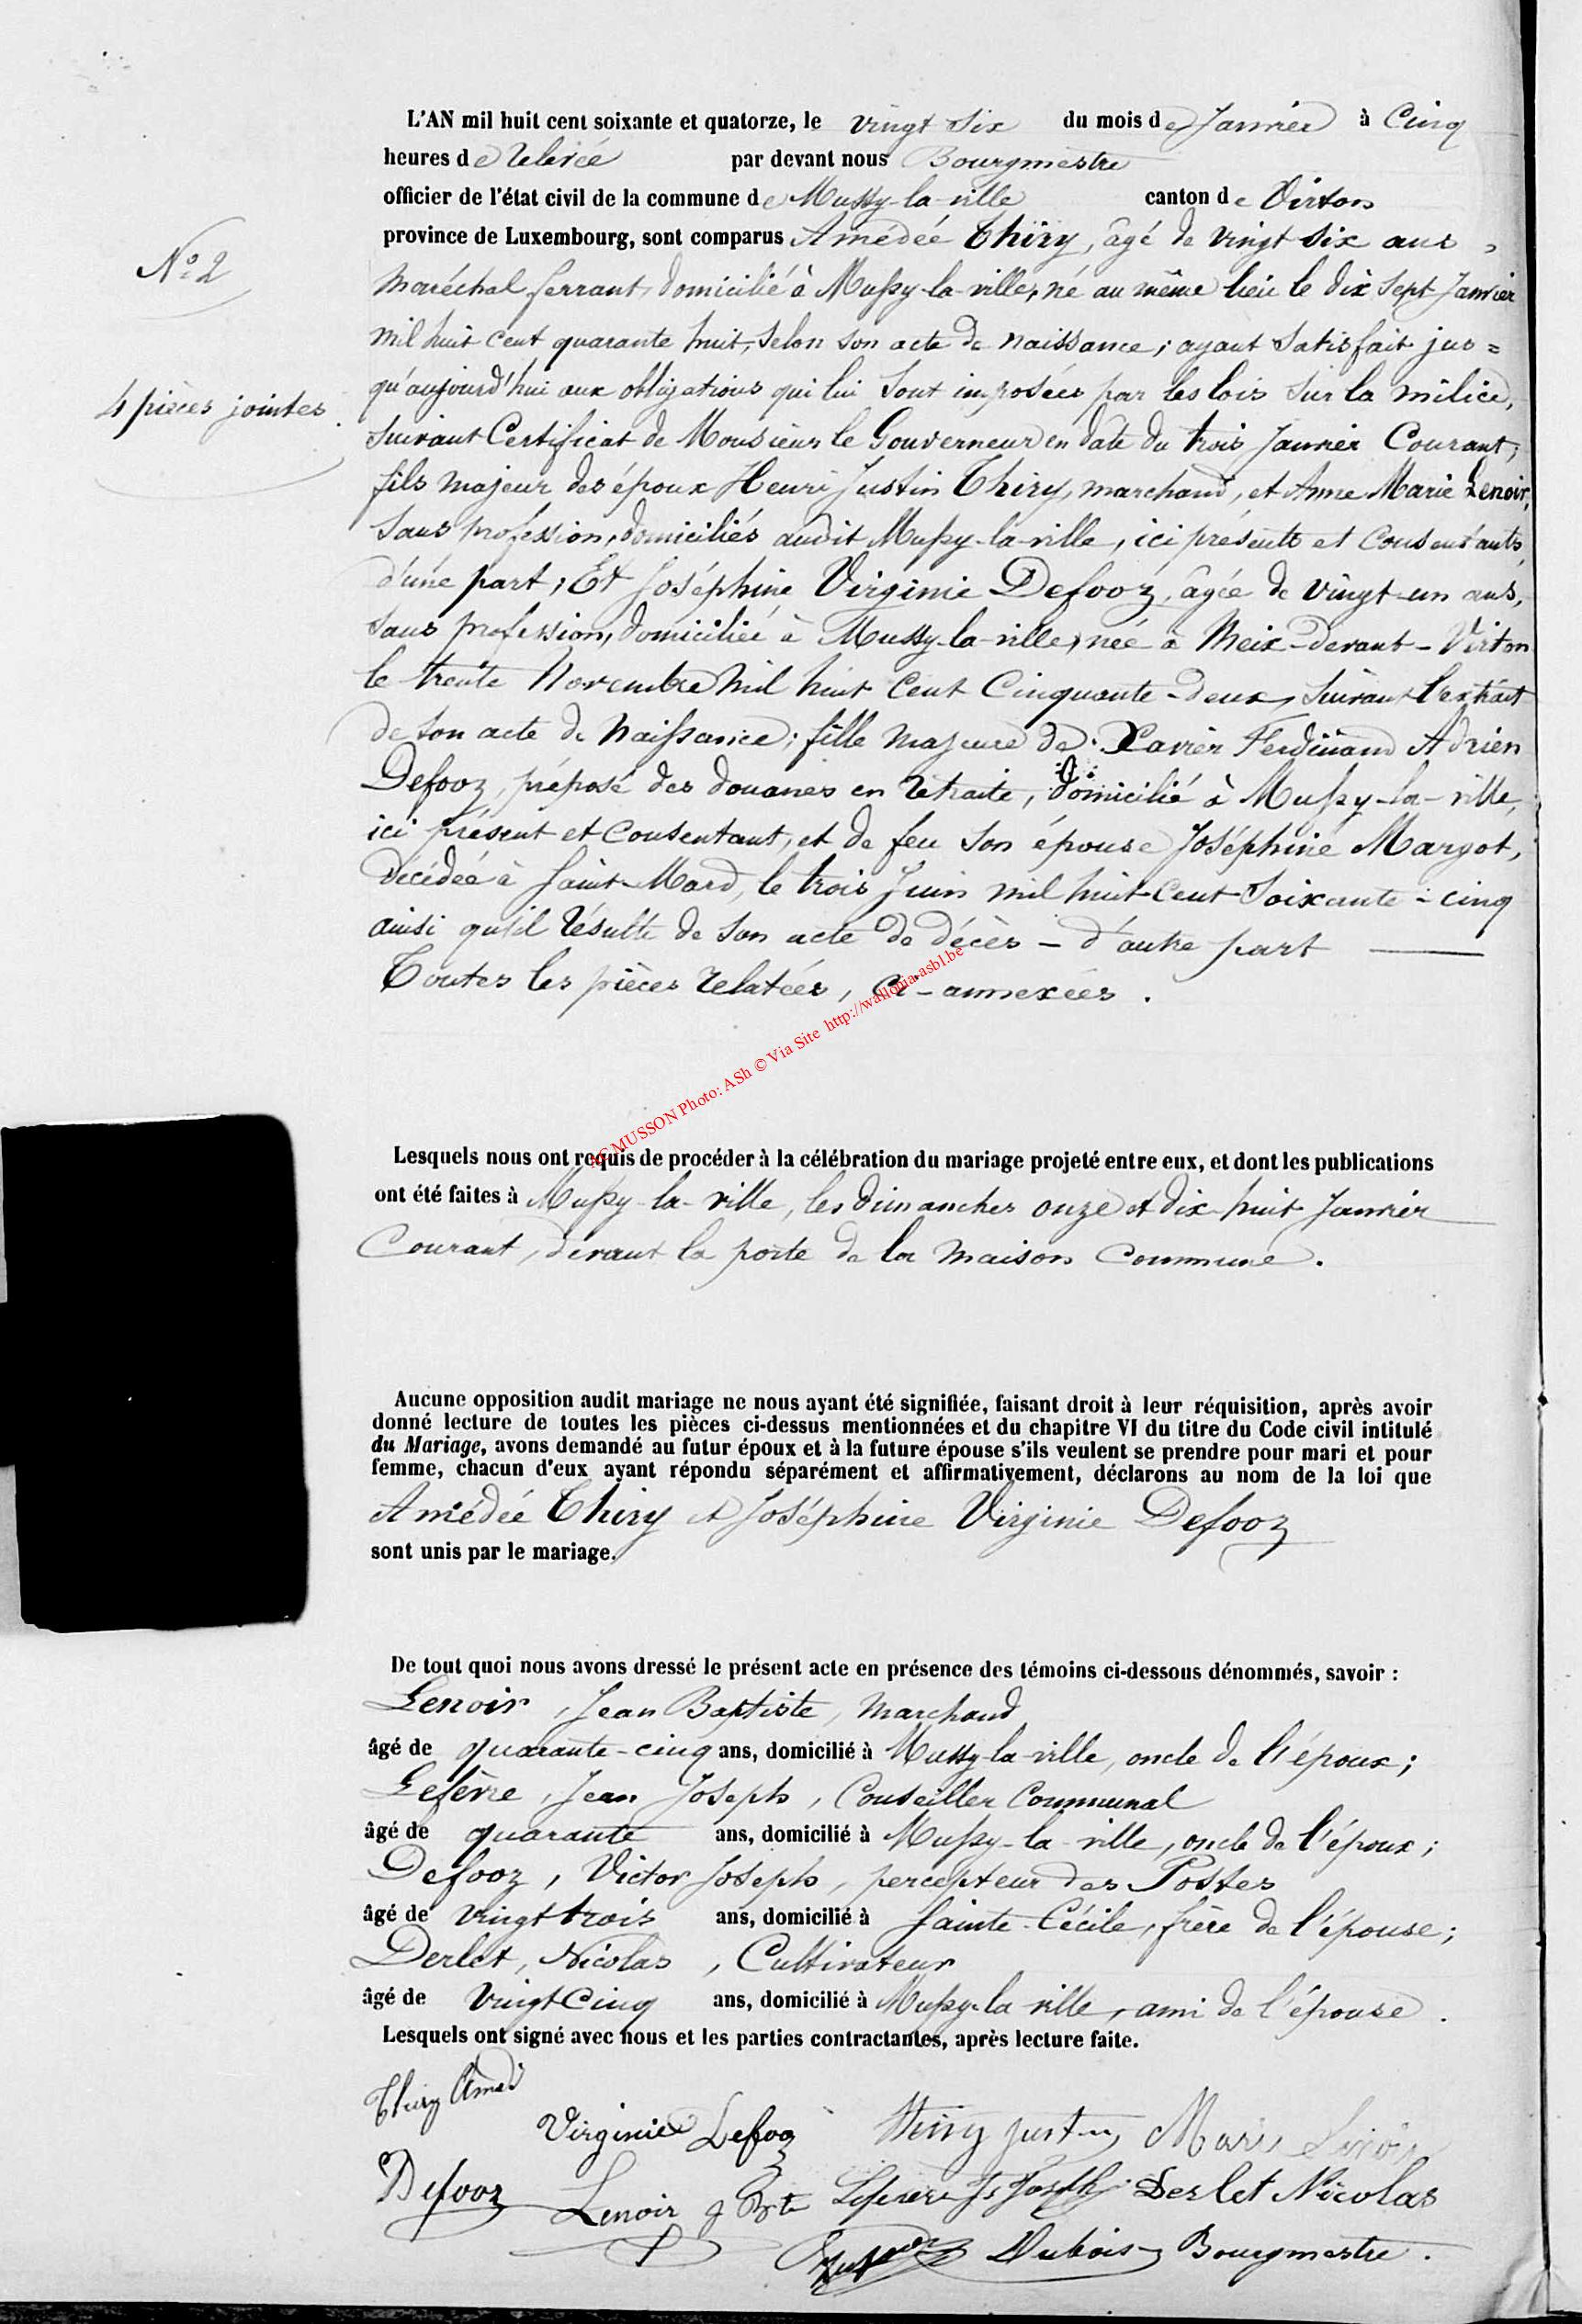 L'AN mil huit cent soixante et quatorze, le vingt six du mois de Janvier à Cinq
heures de relevée par devant nous Bourgmestre
officier de l'état civil de la commune de Mussy-la-ville canton de Virton
province de Luxembourg, sont comparus Amédée Thiry, âgé de vingt six ans,
N° 2
maréchal ferrant, domicilié à Mussy-la-ville, né au même lieu le dix sept Janvier
mil huit cent quarante huit, selon son acte de naissance; ayant satisfait jus=
4 pièces jointes.
qu'aujourd'hui aux obligations qui lui sont imposées par les lois sur la milice,
suivant Certificat de Monsieur le Gouverneur en date du trois Janvier Courant;
fils majeur des époux Henri Justin Thiry, marchand, et Anne Marie Lenoir,
sans profession, domiciliés audit Mussy-la-ville, ici présents et consentants
d'une part; Et Joséphine Virginie Defooz, âgée de vingt-un ans,
sans profession, domiciliée à Mussy-la-ville, née à Meix-devant-Virton
le trente Novembre mil huit cent cinquante-deux, suivant l'extrait
de son acte de Naissance; fille majeure de Xavier Ferdinand Adrien
Defooz, préposé des douanes en retraite, domicilié à Mussy-la-ville,
ici présent et consentant, et de feu son épouse Joséphine Margot,
décédée à Saint-Mard, le trois Juin mil huit-Cent-Soixante-cinq
ainsi qu'il résulte de son acte de décès - d'autre part
Toutes les pièces relatées, ci-annexées.
AC MUSSON Photo: ASh © Via Site http://wallonia-asbl.be
Lesquels nous ont requis de procéder à la célébration du mariage projeté entre eux, et dont les publications
ont été faites à Mussy-la-ville, les dimanches onze et dix-huit Janvier
Courant, devant la porte de la maison Commune.
Aucune opposition audit mariage ne nous ayant été signifiée, faisant droit à leur réquisition, après avoir
donné lecture de toutes les pièces ci-dessus mentionnées et du chapitre VI du titre du Code civil intitulé
du Mariage, avons demandé au futur époux et à la future épouse s'ils veulent se prendre pour mari et pour
femme, chacun d'eux ayant répondu séparément et affirmativement, déclarons au nom de la loi que
Amédée Thiry et Joséphine Virginie Defooz
sont unis par le mariage.
De tout quoi nous avons dressé le présent acte en présence des témoins ci-dessous dénommés, savoir :
Lenoir, Jean Baptiste, marchand
âgé de quarante-cinq ans, domicilié à Mussy-la-ville, oncle de l'époux;
Lefèvre, Jean Joseph, Conseiller Communal
âgé de quarante ans, domicilié à Mussy-la-ville, oncle de l'époux;
Defooz, Victor Joseph, percepteur des Postes
âgé de vingt trois ans, domicilié à Sainte-Cécile, frère de l'épouse;
Derlet, Nicolas, Cultivateur
âgé de vingt Cinq ans, domicilié à Mussy-la-ville, ami de l'épouse.
Lesquels ont signé avec nous et les parties contractantes, après lecture faite.
Thiry Amed
Virginie Defooz Thiry Justin Marie Lenoir
Defooz Lenoir J Bte Lefevre Js Joseph Derlet Nicolas
Dubois Bourgmestre.